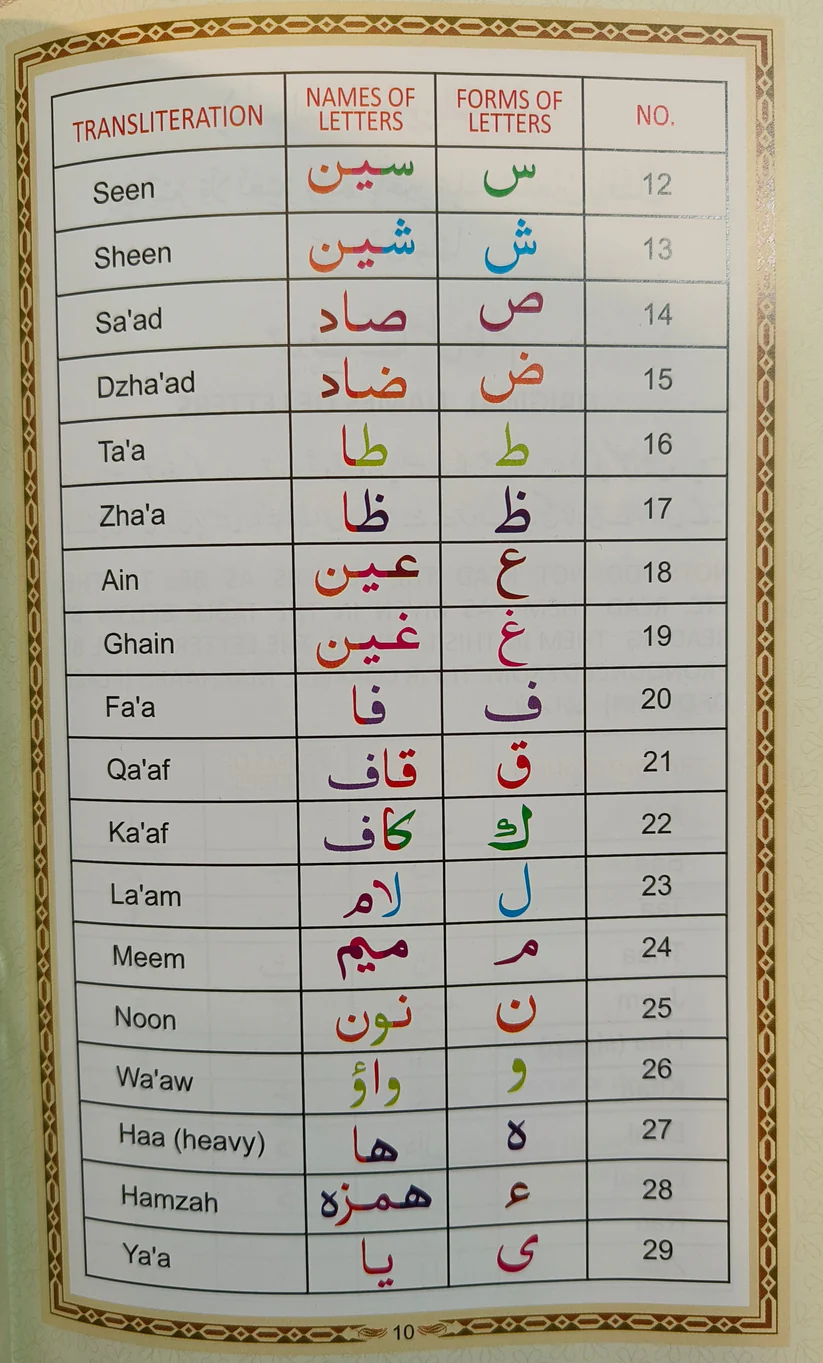 TRANSLITERATION NAMES OF LETTERS FORMS OF LETTERS NO.
Seen سين س 12
Sheen شين ش 13
Sa'ad صاد ص 14
Dzha'ad ضاد ض 15
Ta'a طا ط 16
Zha'a ظا ظ 17
Ain عين ع 18
Ghain غين غ 19
Fa'a فا ف 20
Qa'af قاف ق 21
Ka'af كاف ك 22
La'am لام ل 23
Meem ميم م 24
Noon نون ن 25
Wa'aw واؤ و 26
Haa (heavy) ها ه 27
Hamzah همزه ء 28
Ya'a يا ى 29
10